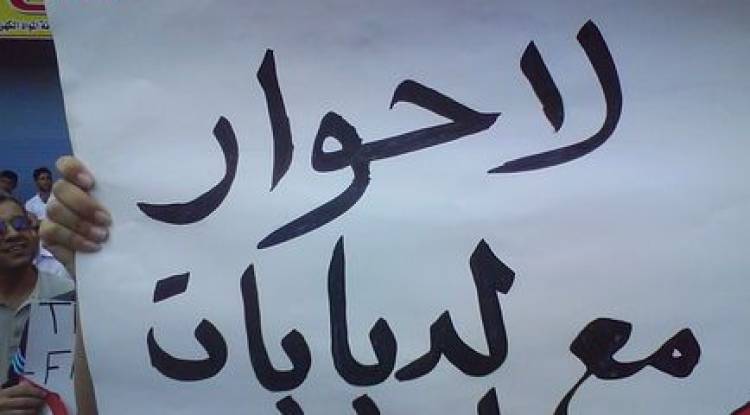 المواد
لا حوار
مع الدبابات